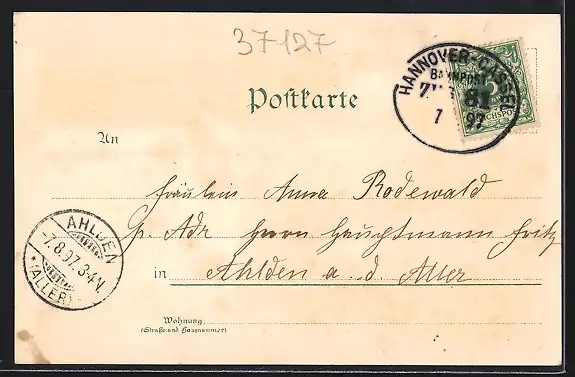 37127
HANNOVER-CASSEL
BAHNPOST
81
7 8 97
5
REICHSPOST
Postkarte
An
Fräulein Anna Rodewald
p. Adr Herrn Hauptmann Fritz
in Ahlden a. d. Aller
AHLDEN
-7.8.97. 3-4 N.
* (ALLER)
Wohnung
(Straße und Hausnummer)